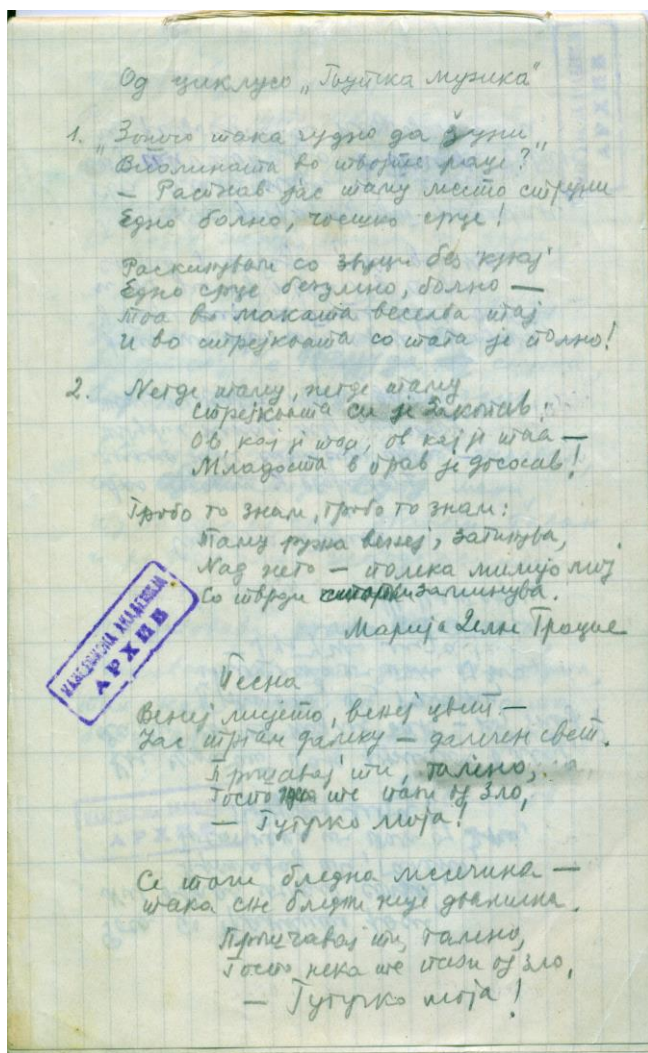 Од циклусо „Гоутчка музика"
1. „Зошчо така чудно да зуни„
Виолината во твојте раце?
— Растегав јас таму место струни
Едно болно, човешко срце!
Раскинувам со звуци без крај
Едно срце безумно, болно —
Тоа во маката весела тај
И во стрејкоата со тага је полно!
2. Негде таму, негде таму
стрејкоата си је закопав:
Ов, кај ји тоа, ов кај ји таа —
Младоста в прав је дососав!
Гробо го знам, гробо го знам:
Таму ружа венеј, загинува,
Над него — толка милијо мој
Со тврди заминува.
Марија Деле Грацие
Песна
Венеј лисјето, венеј цвет —
Јас тргам далеку — далечен свет.
Прошчавај ми, галено,
Госпо те пази од зло,
— Гугучко моја!
Се топи бледна месечина —
така сне бледи неје двамина.
Прошчавај ми, галено,
Госпо нека те пази од зло,
— Гугучко моја!
МАКЕДОНСКА АКАДЕМИЈА
АРХИВ